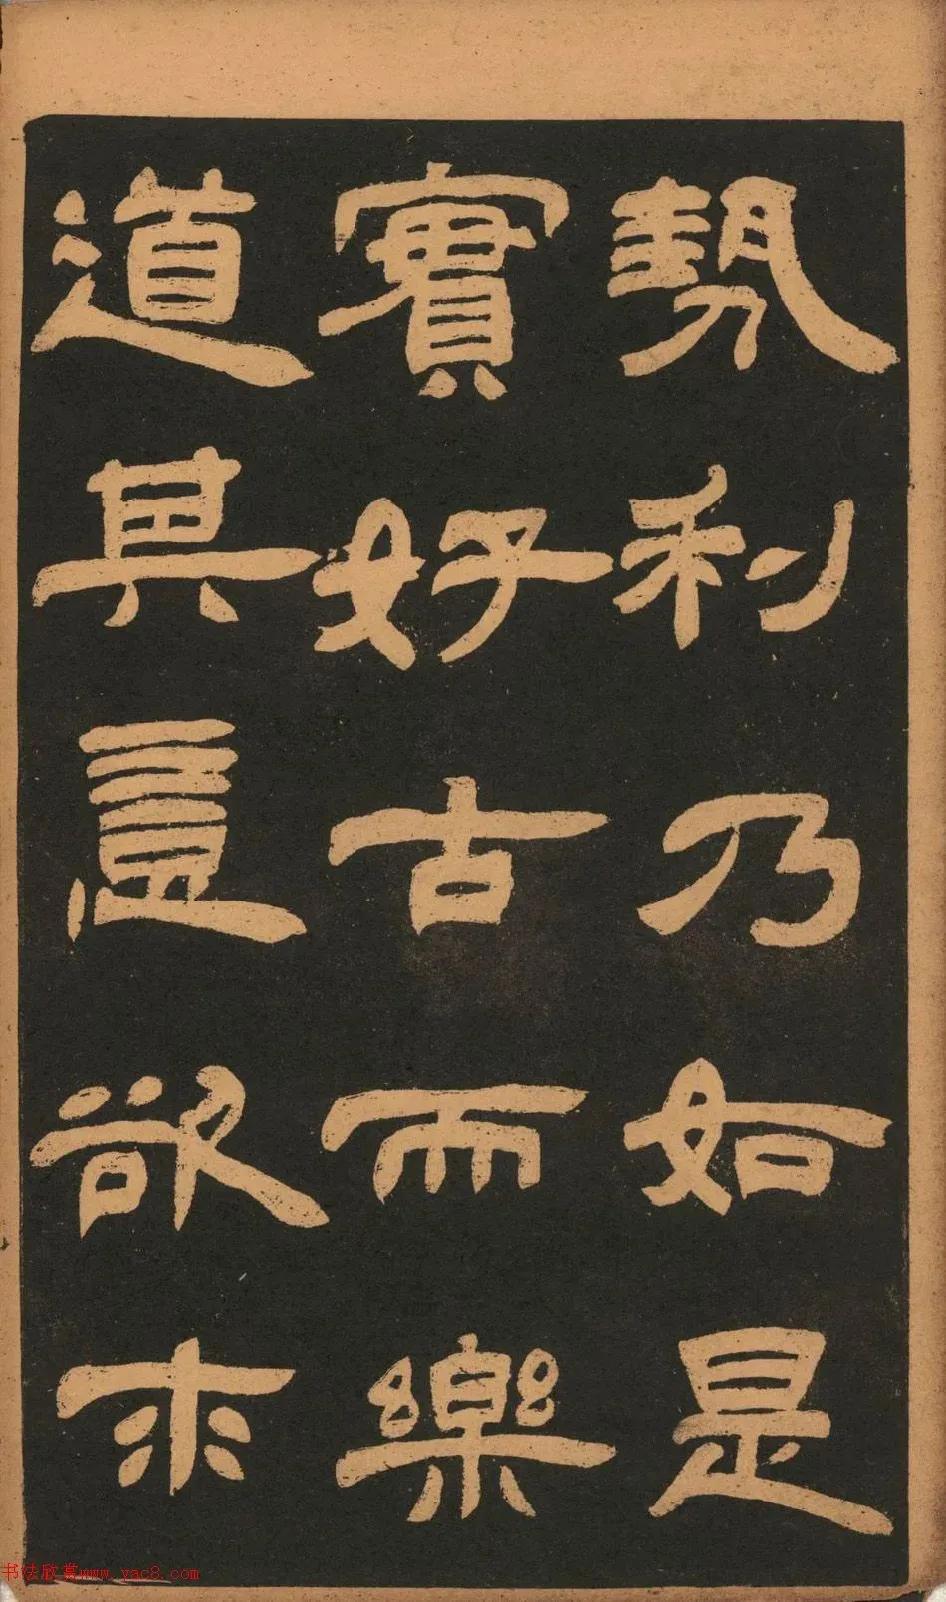 勢利乃如是
實好古而樂
道其意欲求
书法欣赏www.yac8.com